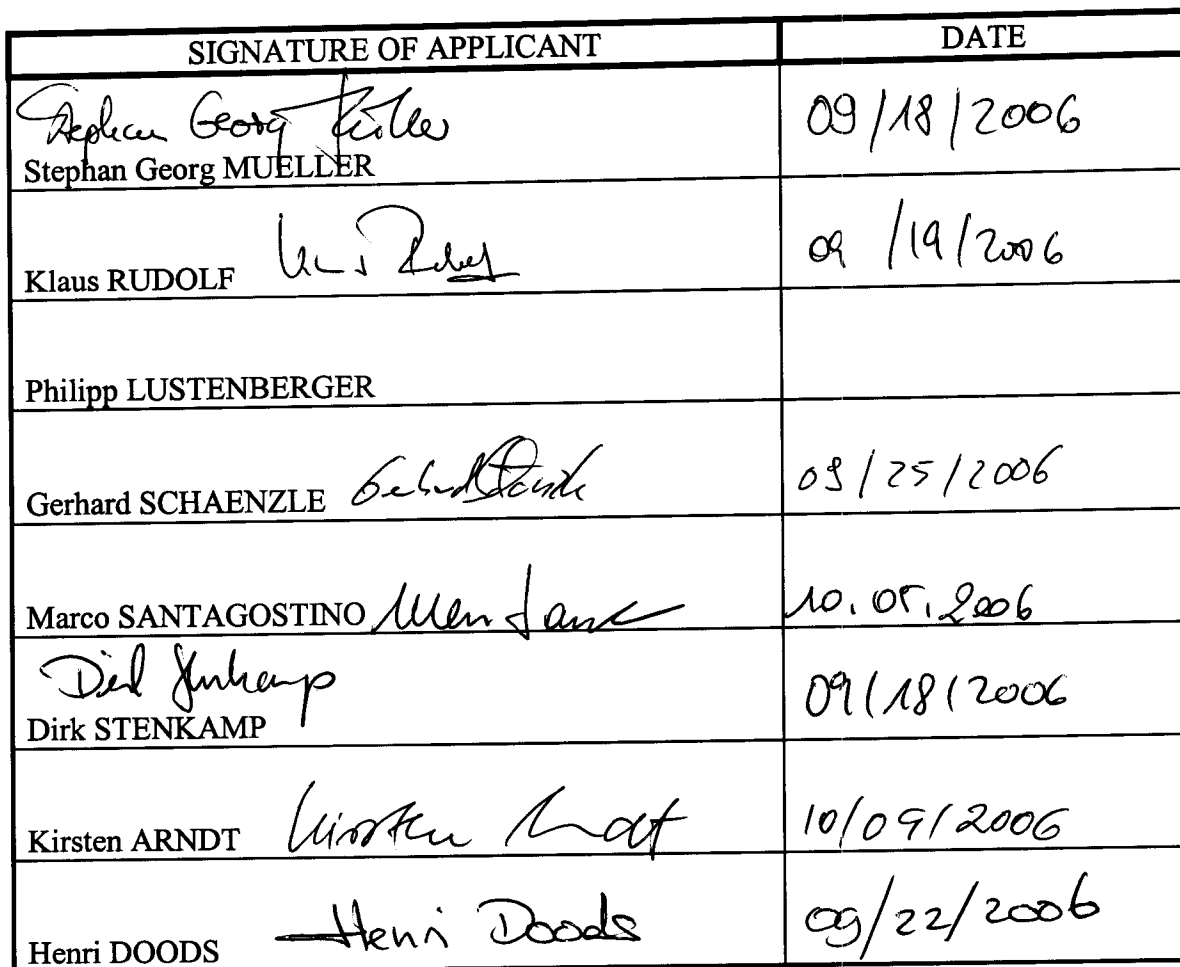 SIGNATURE OF APPLICANT DATE
Stephan Georg Müller 09/18/2006
Stephan Georg MUELLER
Klaus RUDOLF 09/19/2006
Philipp LUSTENBERGER
Gerhard SCHAENZLE 09/25/2006
Marco SANTAGOSTINO 10.05.2006
Dirk Stenkamp 09/18/2006
Dirk STENKAMP
Kirsten ARNDT Kirsten Arndt 10/09/2006
Henri DOODS Henri Doods 09/22/2006